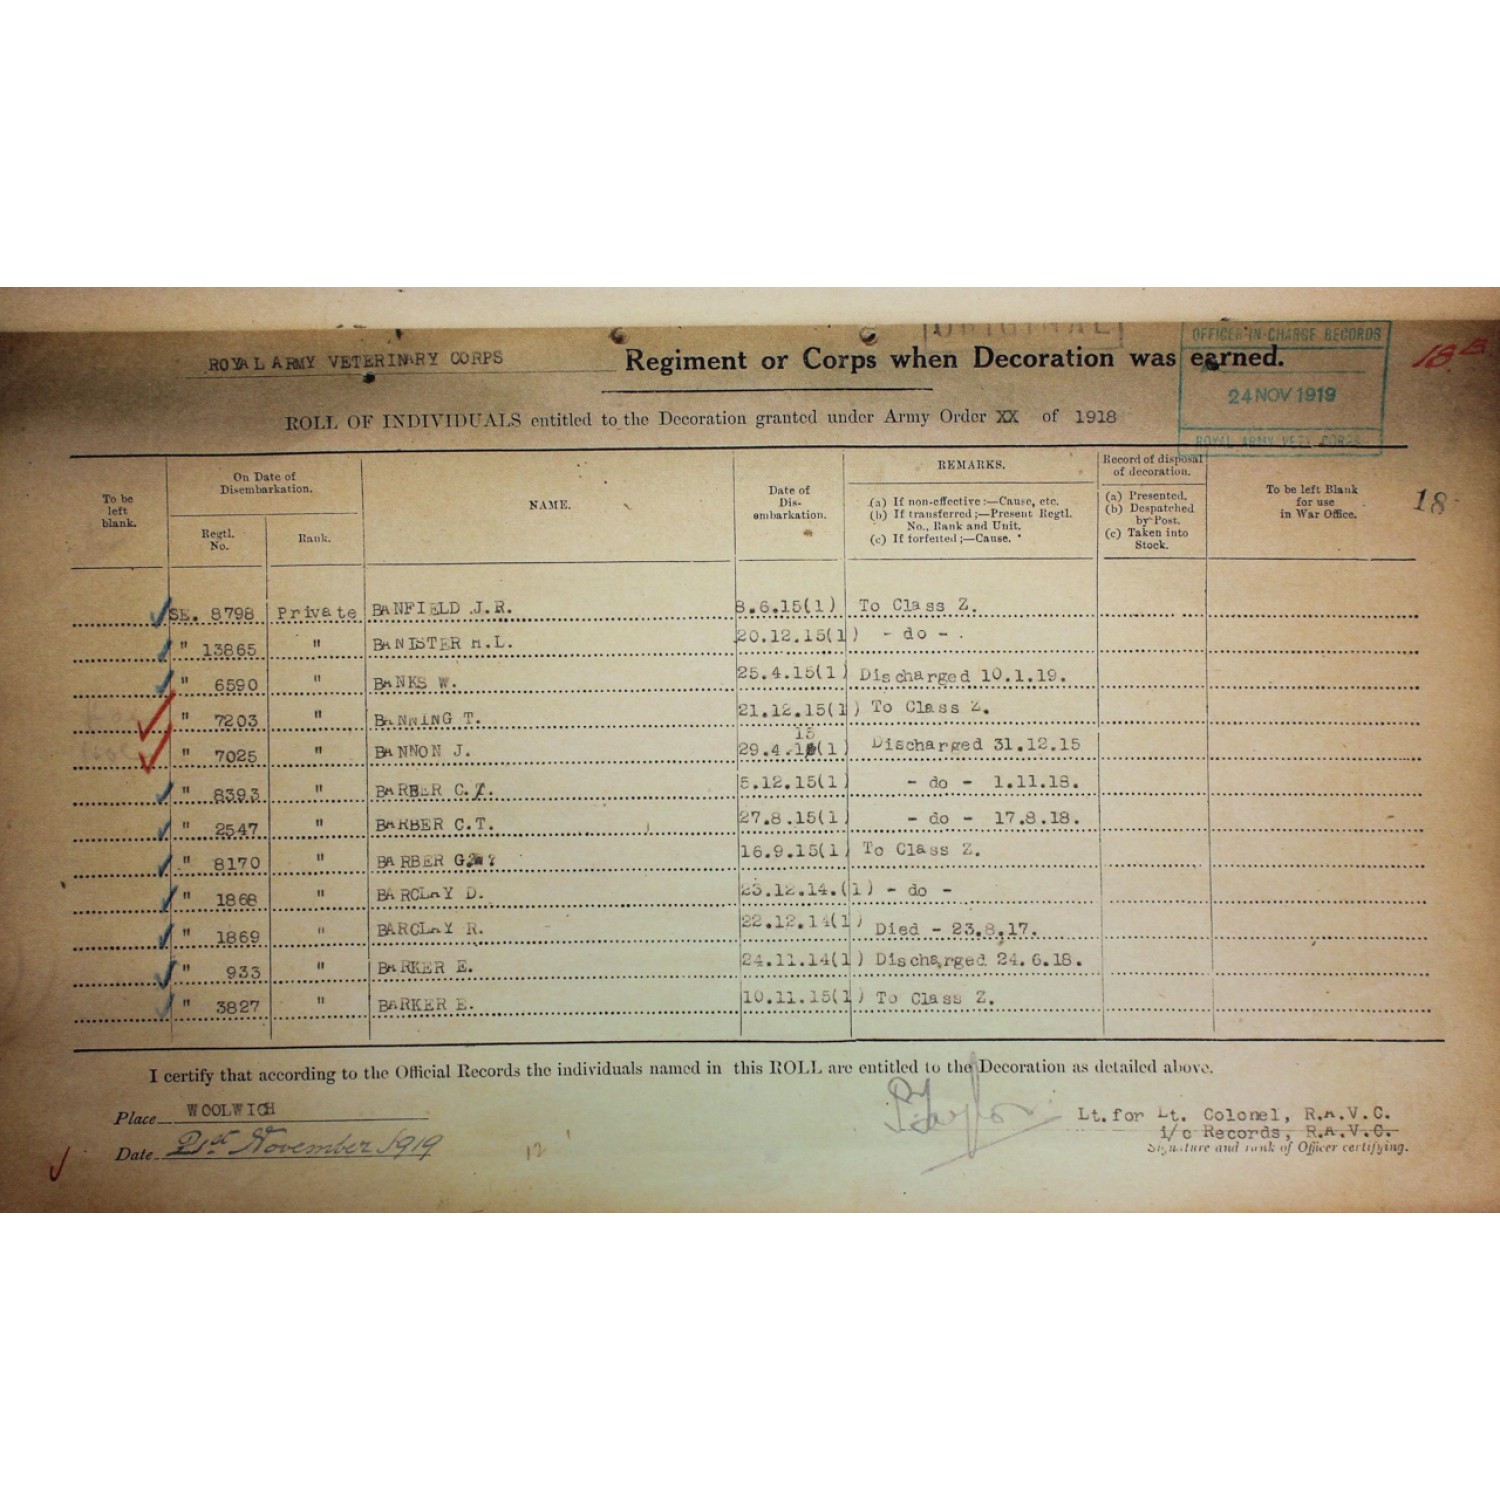 ORIGINAL
OFFICER-IN-CHARGE RECORDS
24 NOV 1919
ROYAL ARMY VETY CORPS
18 B
ROYAL ARMY VETERINARY CORPS Regiment or Corps when Decoration was earned.
ROLL OF INDIVIDUALS entitled to the Decoration granted under Army Order XX of 1918
To be left blank.
On Date of Disembarkation.
Regtl. No.
Rank.
NAME.
Date of Dis-embarkation.
REMARKS.
(a) If non-effective :—Cause, etc.
(b) If transferred ;—Present Regtl. No., Rank and Unit.
(c) If forfeited ;—Cause.
Record of disposal of decoration.
(a) Presented.
(b) Despatched by Post.
(c) Taken into Stock.
To be left Blank for use in War Office.
18
SE. 8798 Private BANFIELD J.R. 8.6.15(1) To Class Z.
" 13865 " BANISTER H.L. 20.12.15(1) - do - .
" 6590 " BANKS W. 25.4.15(1) Discharged 10.1.19.
" 7203 " BANNING T. 21.12.15(1) To Class Z.
15
" 7025 " BANNON J. 29.4.16(1) Discharged 31.12.15
" 8393 " BARBER C. 5.12.15(1) - do - 1.11.18.
" 2547 " BARBER C.T. 27.8.15(1) - do - 17.8.18.
" 8170 " BARBER G. 16.9.15(1) To Class Z.
" 1868 " BARCLAY D. 23.12.14.(1) - do -
" 1869 " BARCLAY R. 22.12.14(1) Died - 23.8.17.
" 933 " BARKER E. 24.11.14(1) Discharged 24.6.18.
" 3827 " BARKER E. 10.11.15(1) To Class Z.
I certify that according to the Official Records the individuals named in this ROLL are entitled to the Decoration as detailed above.
Place WOOLWICH
Date 21st November 1919
12
Lt. for Lt. Colonel, R.A.V.C.
i/c Records, R.A.V.C.
Signature and rank of Officer certifying.